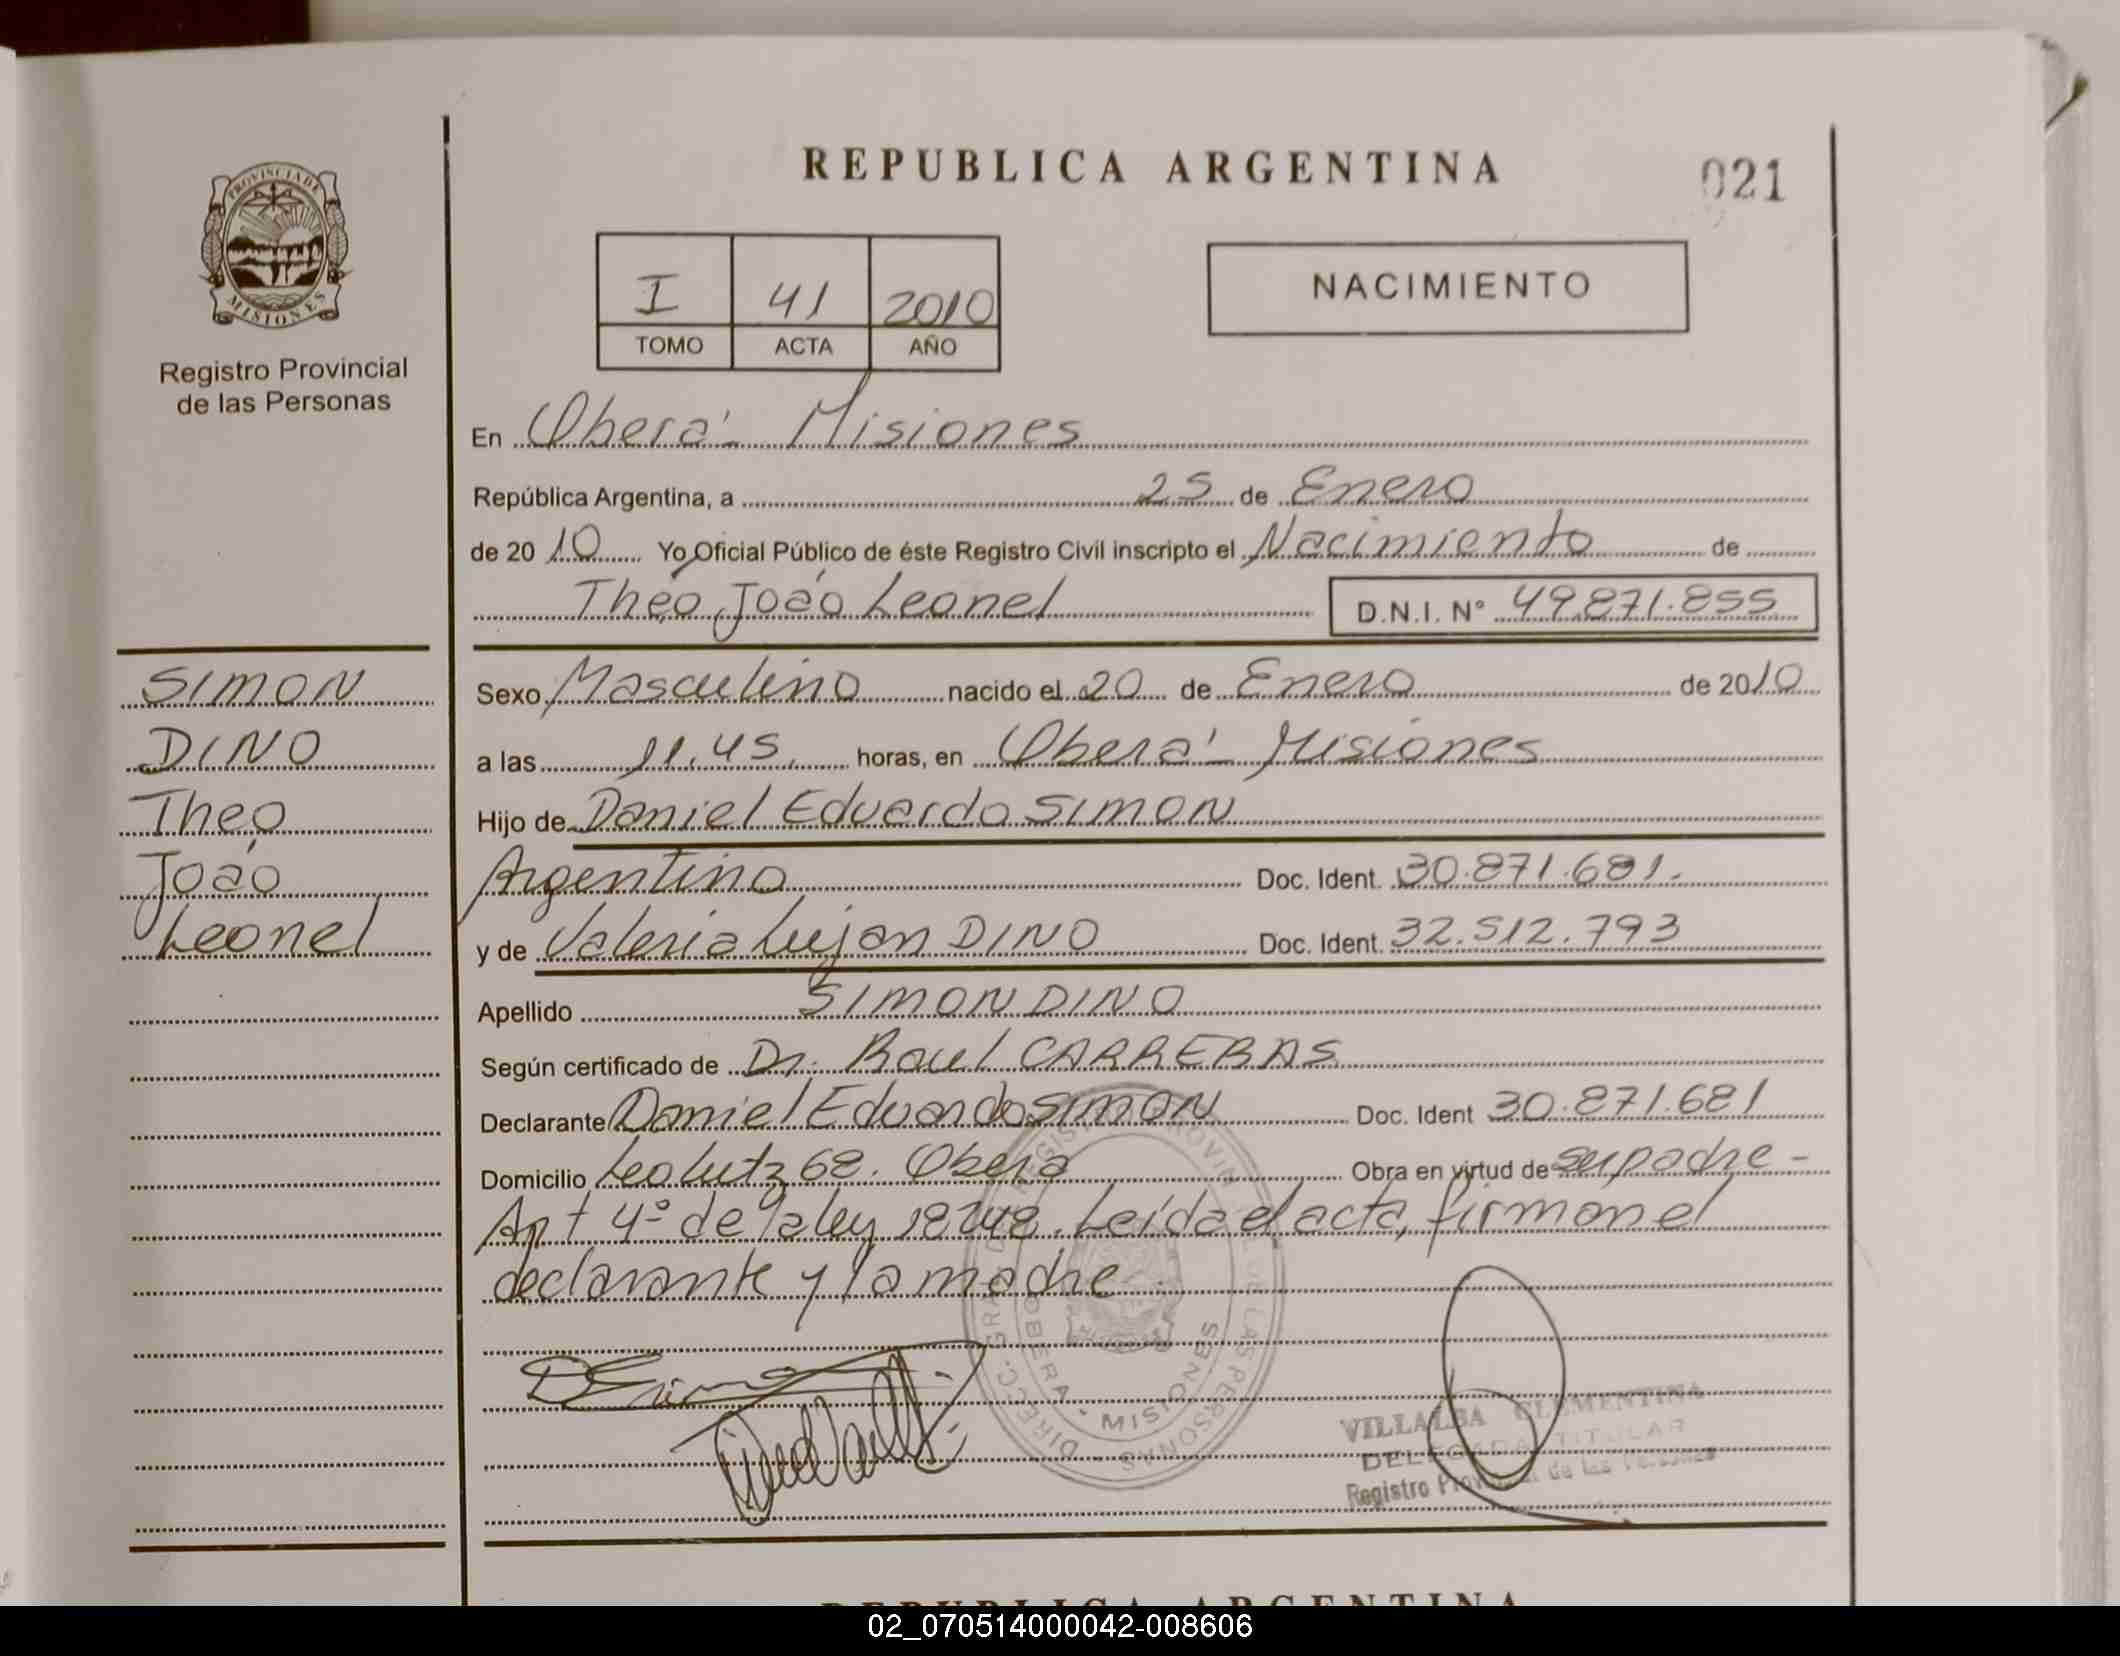 REPUBLICA ARGENTINA
021
PROVINCIA DE
MISIONES
Registro Provincial
de las Personas
I 41 2010
TOMO ACTA AÑO
NACIMIENTO
En Oberá - Misiones
República Argentina, a 25 de Enero
de 2010 Yo Oficial Público de éste Registro Civil inscripto el Nacimiento de
Theo João Leonel D.N.I. Nº 49.871.855
SIMON
DINO
Theo
João
Leonel
Sexo Masculino nacido el 20 de Enero de 2010
a las 11.45. horas, en Oberá - Misiones
Hijo de Daniel Eduardo SIMON
Argentino Doc. Ident. 30.871.681.
y de Valeria Lujan DINO Doc. Ident. 32.512.793
Apellido SIMON DINO
Según certificado de Dr. Raul CARRERAS
Declarante Daniel Eduardo SIMON Doc. Ident 30.871.681
Domicilio Leo Lutz 68. Oberá Obra en virtud de su padre -
Art 4º de la ley 18248. Leída el acta, firman el
declarante y la madre.
OBERA - MISIONES
VILLALBA CLEMENTINA
DELEGADA TITULAR
Registro Provincial de las Personas
REPUBLICA ARGENTINA
02_070514000042-008606